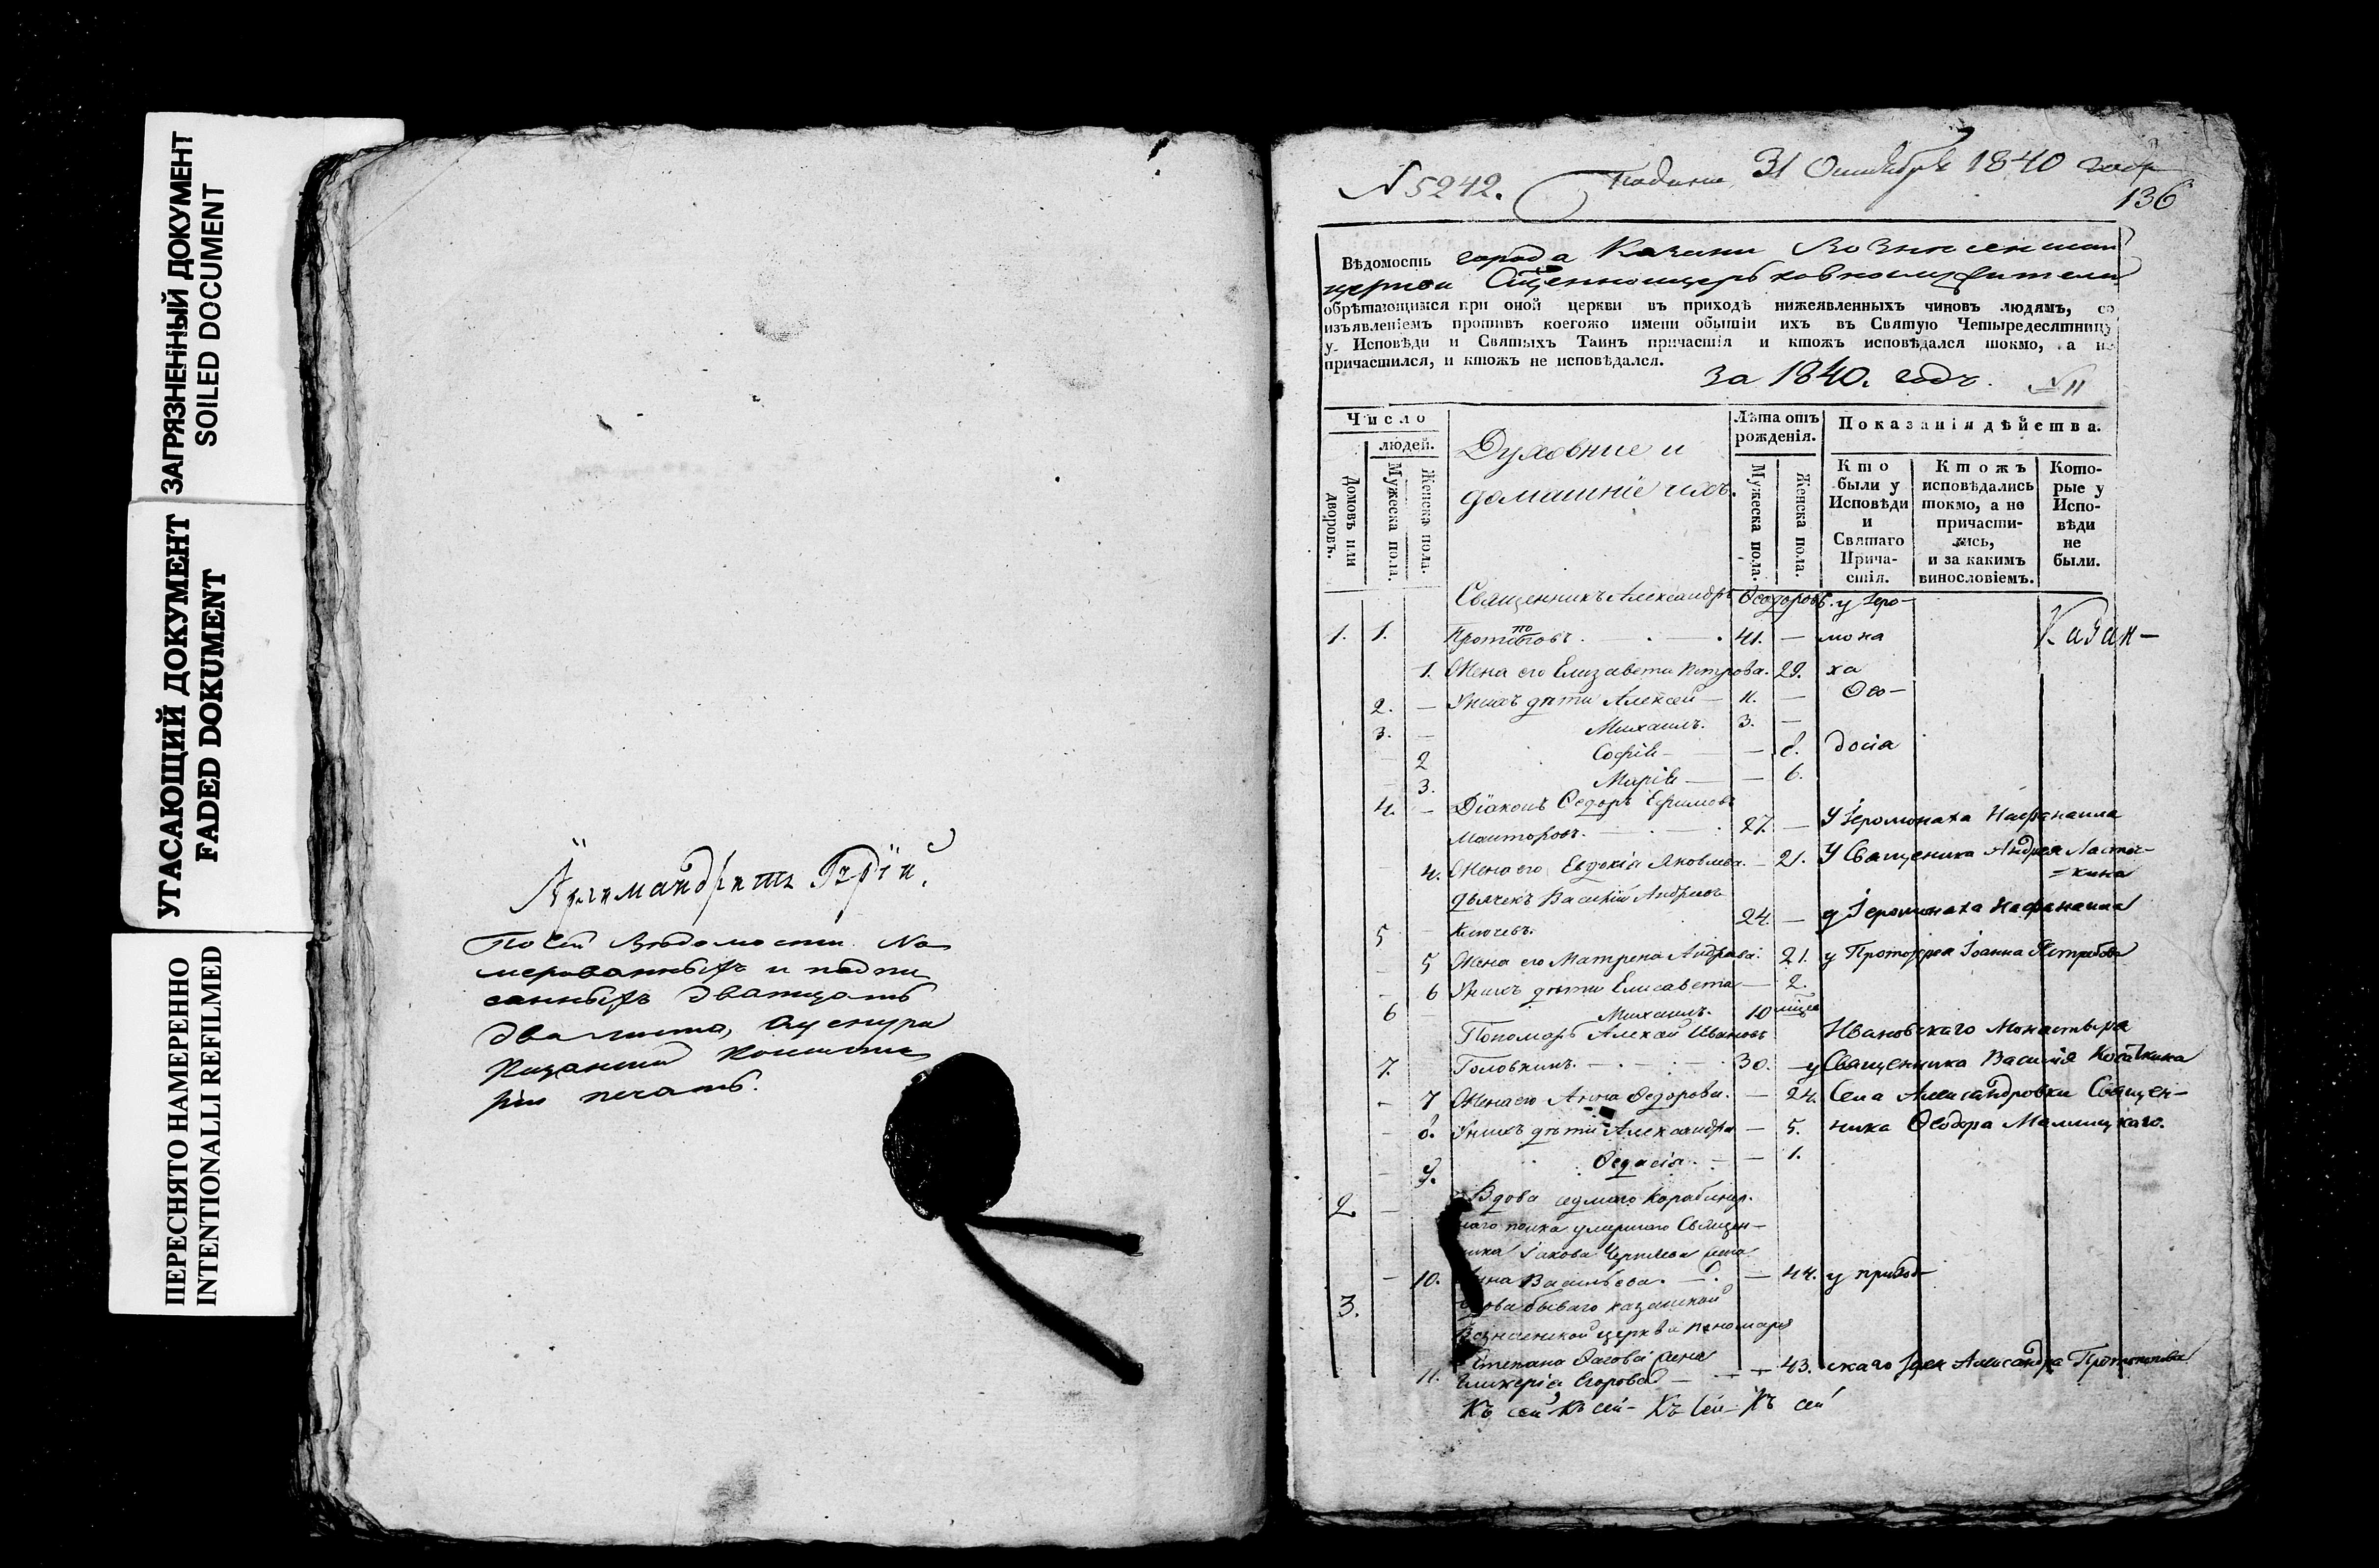 ЗАГРЯЗНЕННЫЙ ДОКУМЕНТ
SOILED DOCUMENT
УГАСАЮЩИЙ ДОКУМЕНТ
FADED DOKUMENT
ПЕРЕСНЯТО НАМЕРЕННО
INTENTIONALLI REFILMED
Архимандритъ Гурій.
По сей Ведомости На
мерованныхъ и подпи
санныхъ дватцать
два листа, 
Казанской Консисто
ріи печать.
N 5242. Подана 31 Октября 1840 года
136
Вѣдомость города Казани Вознесенской
церкви Священноцерковнослужители
обрѣтающимся при оной церкви въ приходѣ нижеявленныхъ чиновъ людямъ, со
изъявленіемъ противъ коегожо имени обытіи ихъ въ Святую Четыредесятницу
у Исповѣди и Святыхъ Таинъ причастія и ктожъ исповѣдался токмо, а не
причастился, и ктожъ не исповѣдался.
За 1840. годъ. N 11
Число
людей.
Домовъ или дворовъ.
Мужеска пола.
Женска пола.
Духовные и
домашніе ихъ.
Лѣта отъ рожденія.
Мужеска пола.
Женска пола.
Показанія дѣйства.
Кто были у Исповѣди и Святаго Прича-стія.
Ктожъ исповѣдались токмо, а не причасти-лись, и за какимъ винословіемъ.
Кото-рые у Испо-вѣди не были.
Священникъ Александръ Ѳеодоровъ. у Іеро-
1. 1. Протопоповъ. 41. — мона Казан-
1. Жена его Елизавета Петрова. 29. ха
2. — У нихъ дѣти Алексей — 11. — Ѳео-
3. — Михаилъ. 3. —
2 Софія — — 8. досіа
3. Марія — — 6.
4. — Діаконъ Ѳедоръ Ефимовъ
Маиторовъ. 27. — У Іеромонаха Нафанаила
4. Жена его Евдокія Яковлева. — 21. У Священика Андрея Ласточ-
=кина
Дьячекъ Василій Андреевъ
5 Ключевъ. 24. — у Іеромонаха Нафанаила
5 Жена его Матрена Андреева. 21. у Протоіерея Іоанна Ястребова
6 У нихъ дѣти Елисавета — 2.
6 Михаилъ. 10 мцев
Пономарь Алексей Ивановъ Ивановскаго Монастыря
7. Головкинъ. — 30. — у Священника Василія
7 Жена его Анна Ѳедорова. — 24. Села Александровки Священ-
8. У нихъ дѣти Александра — 5. ника Ѳеодора
9. Ѳедосія. — — 1.
2. Вдова седмаго Карабинер-
наго полка умершаго Священ-
ника Іакова жена
10. Васильева. — — 44. у приход-
3. Вдова бывшаго казанской
Вознесенской церкви пономаря
Степана жена
11. Гликерія Егорова — — 43. скаго Іерея Александра Протопопова
Къ сей Къ сей- Къ сей- Къ сей